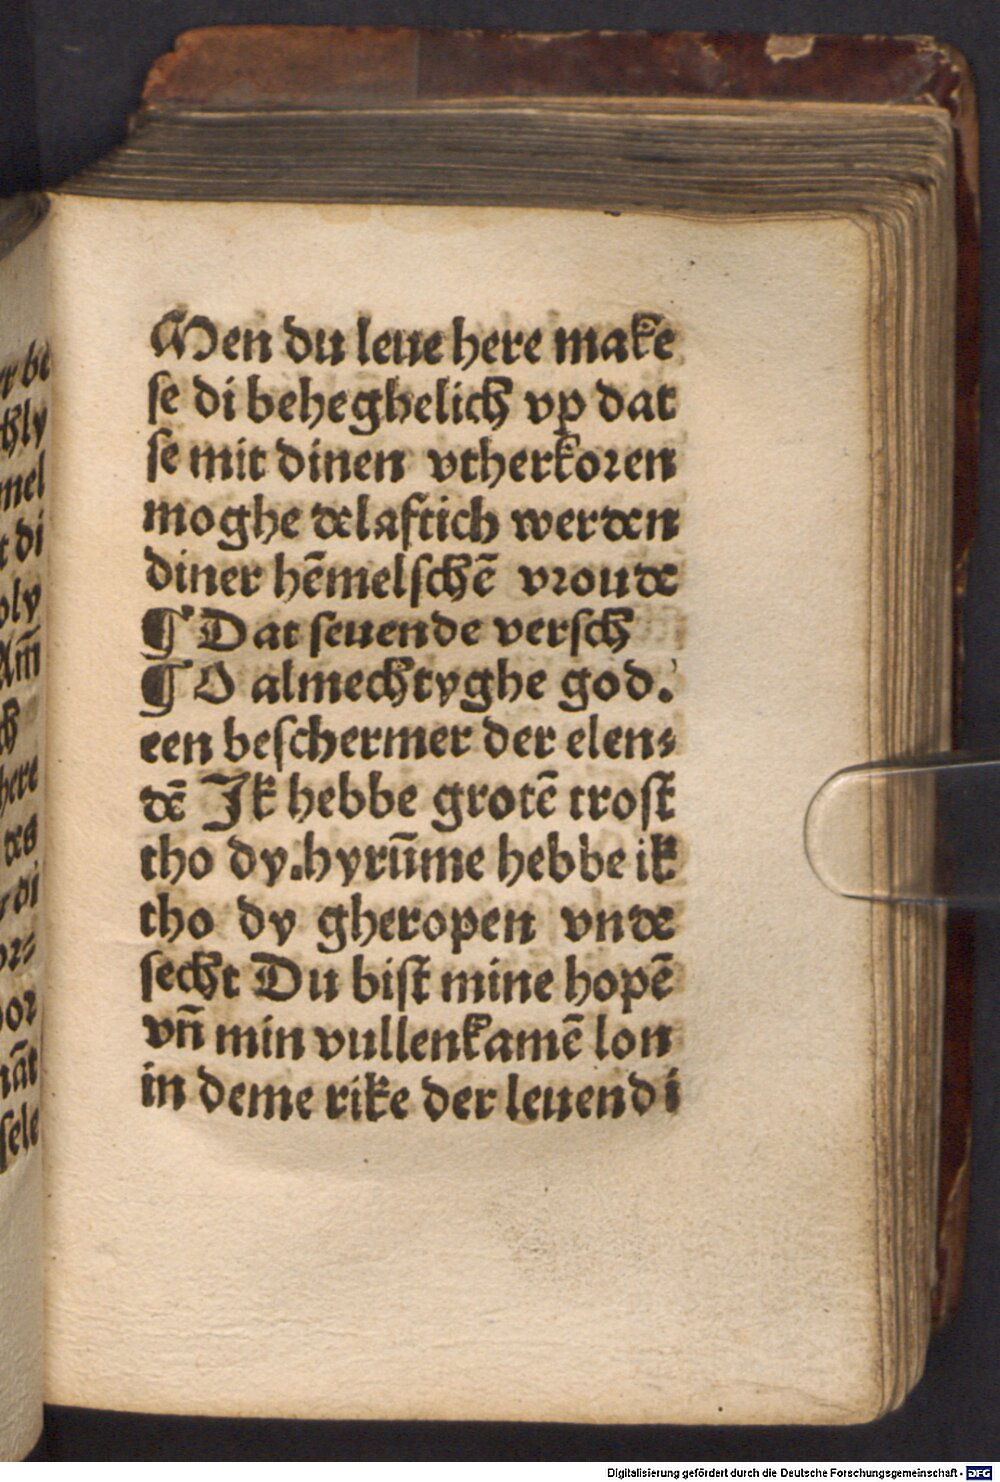 Men du leue here make
se di beheghelich vp dat
se mit dinen vtherkoren
moghe delaftich werden
diner hēmelschē vroude
¶ Dat seuende versch
¶ O almechtyghe god.
een beschermer der elen⸗
dē Ik hebbe grotē trost
tho dy. hyrūme hebbe ik
tho dy gheropen vnde
secht Du bist mine hopē
vn̄ min vullenkamē lon
in deme rike der leuendi
Digitalisierung gefördert durch die Deutsche Forschungsgemeinschaft - DFG